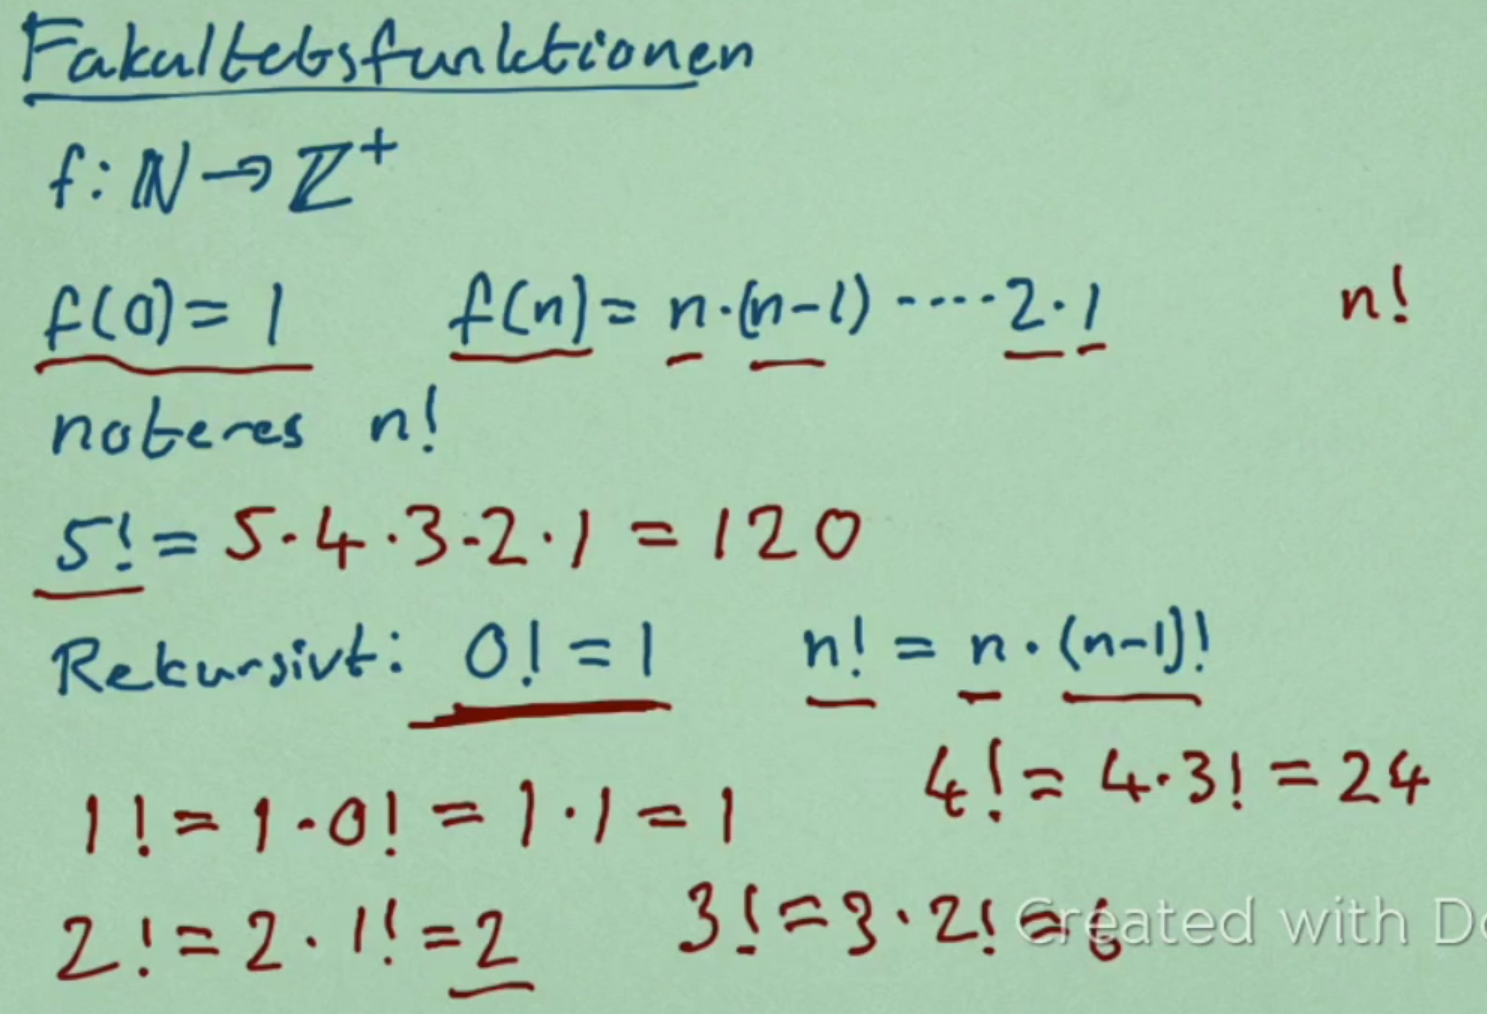 Fakultetsfunktionen
f: ℕ → ℤ⁺
f(0) = 1 f(n) = n·(n-1) ····· 2·1 n!
noteres n!
5! = 5·4·3·2·1 = 120
Rekursivt: 0! = 1 n! = n·(n-1)!
4! = 4·3! = 24
1! = 1·0! = 1·1 = 1
2! = 2·1! = 2 3! = 3·2! = 6
Created with